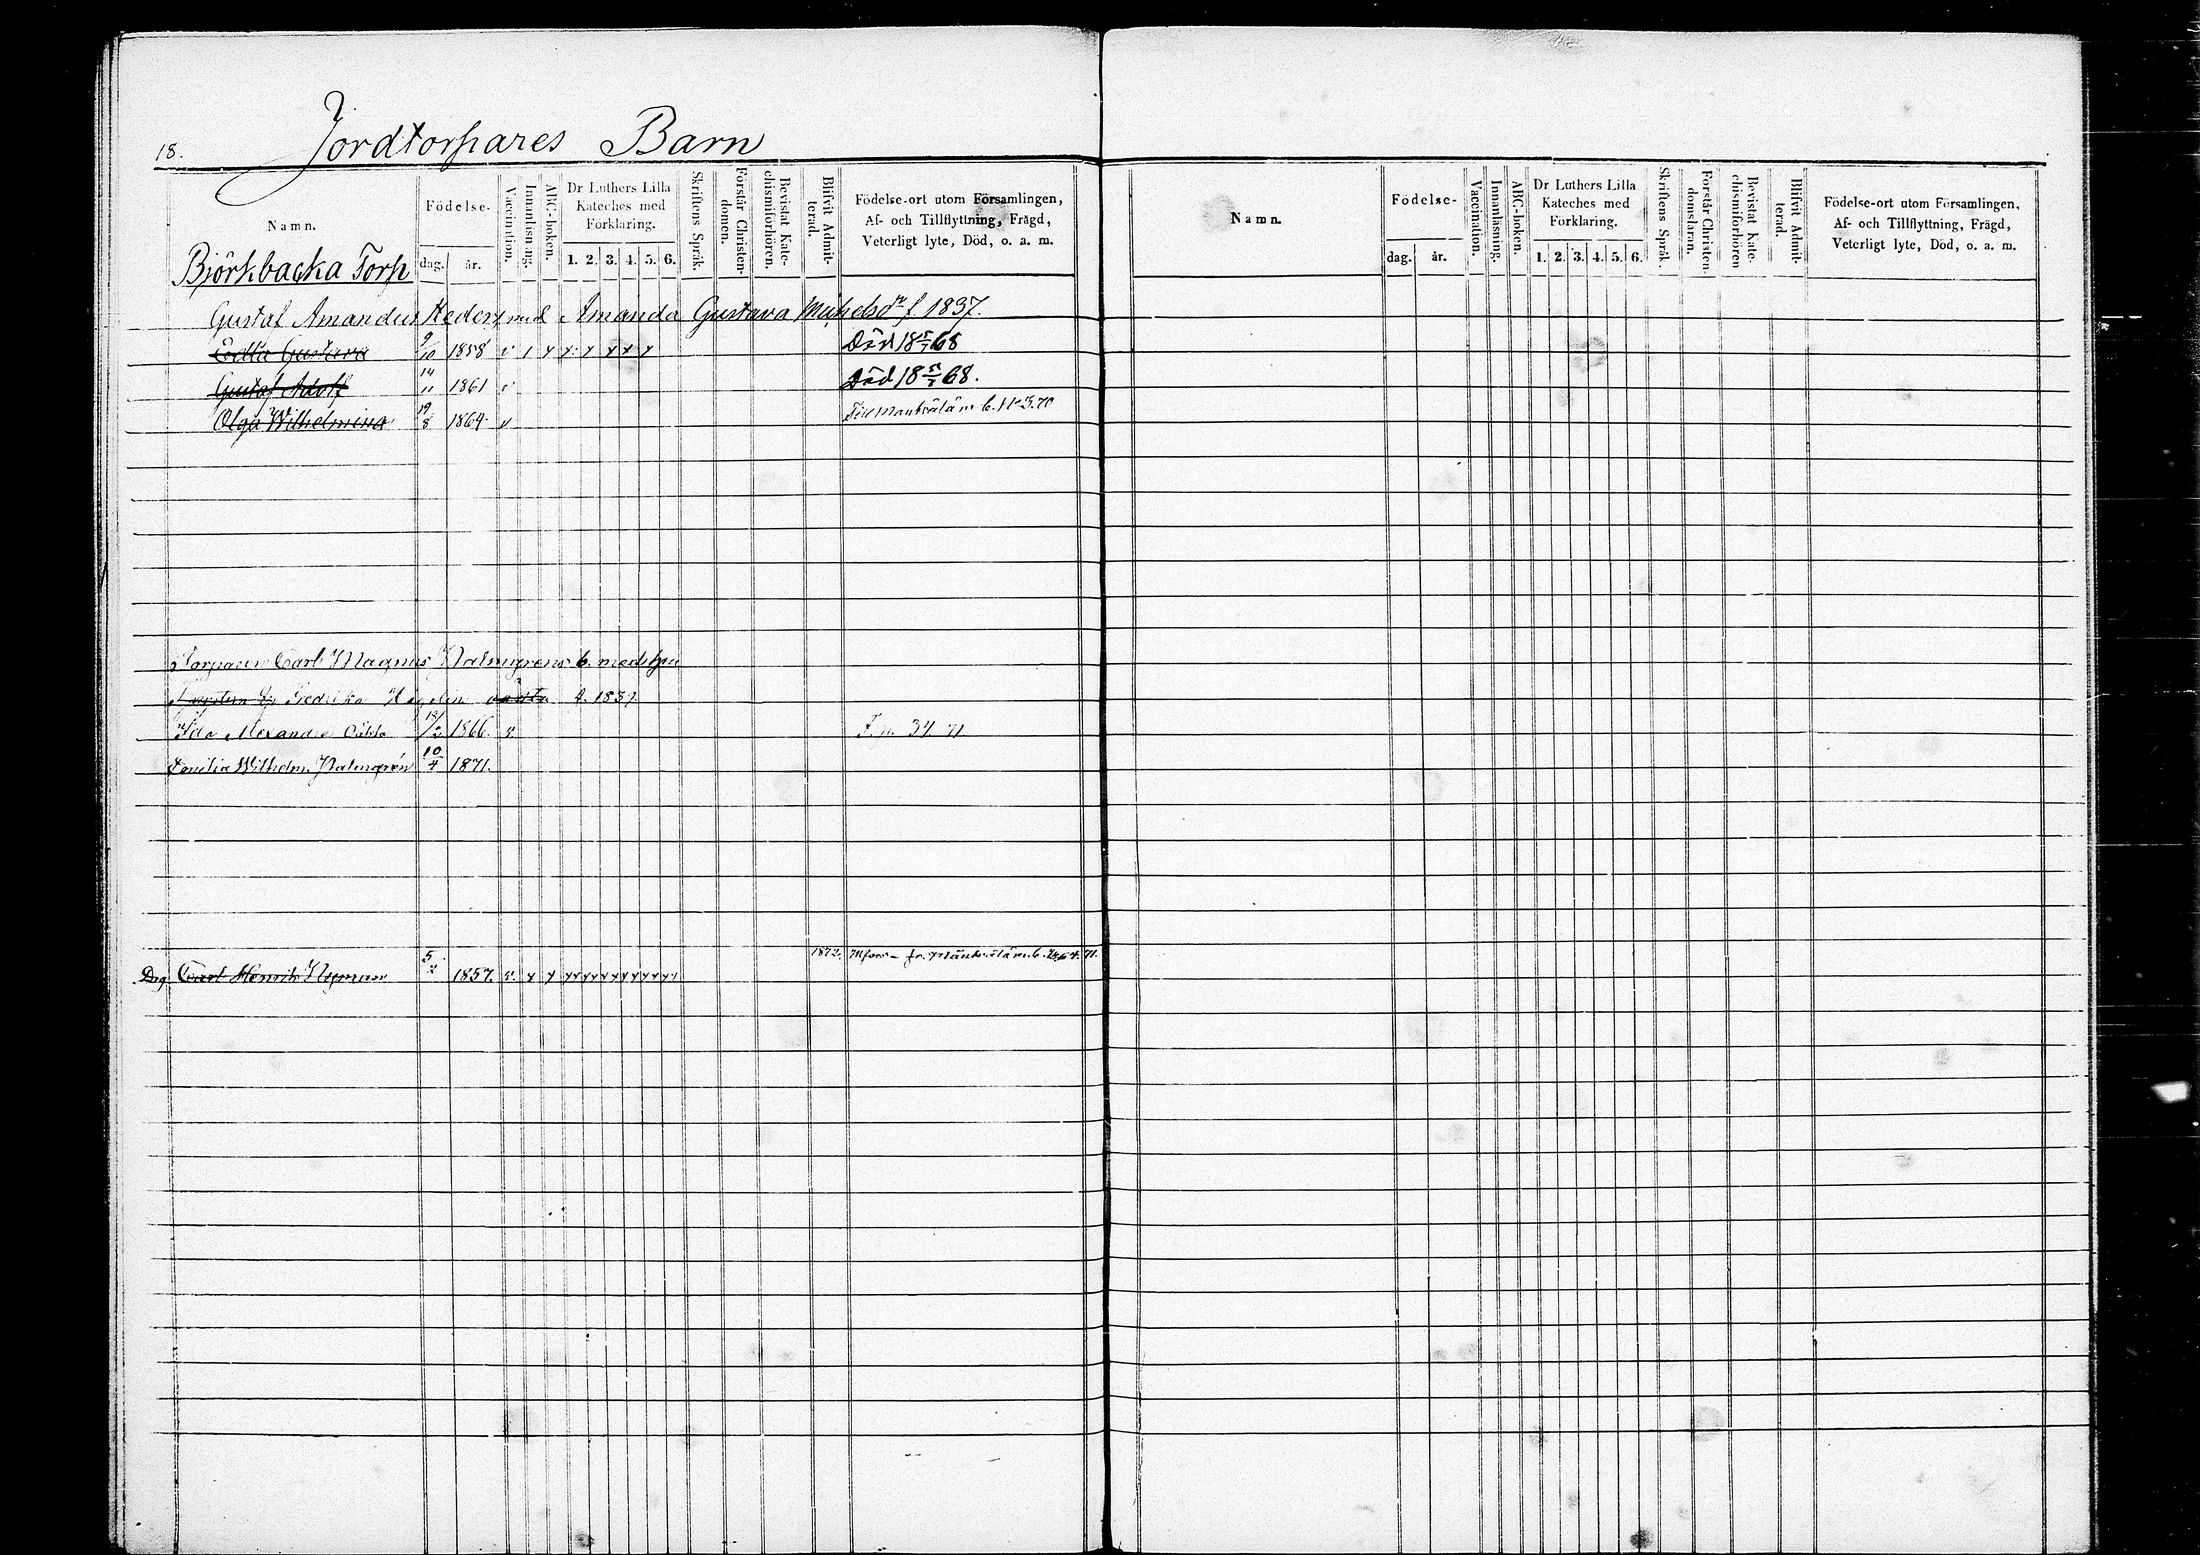 18.
Jordtorpares Barn
Namn.
Födelse-
dag.
år.
Vaccination.
Innanläsning.
ABC-boken.
Dr Luthers Lilla
Kateches med
Förklaring.
1. 2. 3. 4. 5. 6.
Skriftens Språk.
Förstår Christen-
domen.
Bevistat Kate-
chismiförhören.
Blifvit Admit-
terad.
Födelse-ort utom Församlingen,
Af- och Tillflyttning, Frägd,
Veterligt lyte, Död, o. a. m.
Björkbacka Torp
Gustaf Amandus med Amanda Gustava f 1837.
Gustava 9/10 1858 v Död 18 5/7 68
Gustaf Adolf 14/11 1861 v Död 18 5/7 68.
Olga Wilhelmina 19/8 1864 v
Torparen Carl Magnus Malmgrens b. med
Fredrika f. 1837
Ida 1866. v 34 71
Wilhelm. Malmgrén 10/4 1871.
Drg. Carl Henrik Nyman 5/2 1857. v. 1872.
Namn.
Födelse-
dag.
år.
Vaccination.
Innanläsning.
ABC-boken.
Dr Luthers Lilla
Kateches med
Förklaring.
1. 2. 3. 4. 5. 6.
Skriftens Språk.
Förstår Christen-
domsläran.
Bevistat Kate-
chismiförhören
Blifvit Admit-
terad.
Födelse-ort utom Församlingen,
Af- och Tillflyttning, Frägd,
Veterligt lyte, Död, o. a. m.